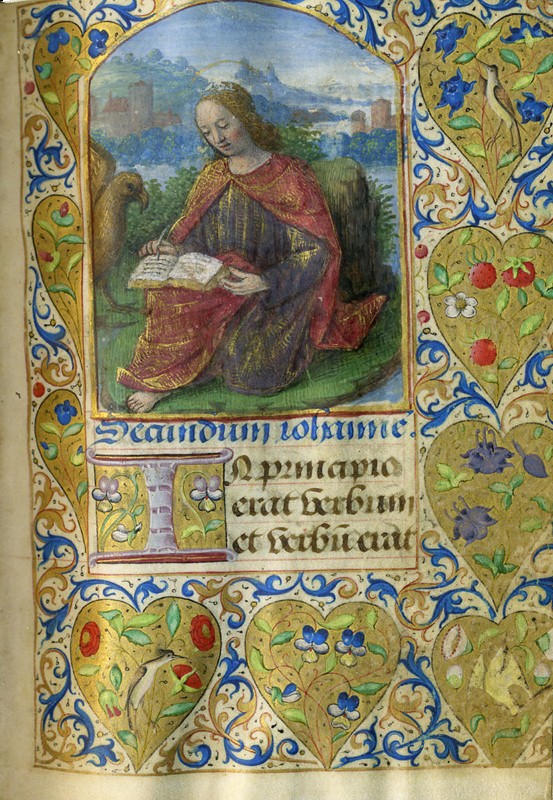 Secundum iohanne.
IN principio
erat verbum
et verbū erat